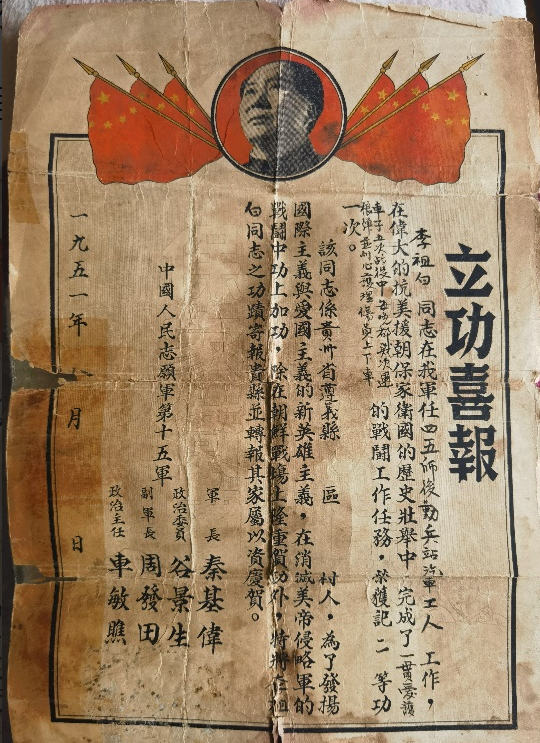 立功喜報
李祖白 同志在我軍任四五師後勤兵站汽車工人 工作，
在偉大的抗美援朝保家衛國的歷史壯舉中 完成了一貫愛護
車子五次戰役中
根彈並耐心護理傷員上下車
的戰鬪工作任務，榮獲記二等功
一次。
該同志係貴州省遵義縣 區 村人，為了發揚
國際主義與愛國主義的新英雄主義，在消滅美帝侵略軍的
戰鬪中功上加功，除在朝鮮戰場上隆重賀功外，特將李祖
白同志之功蹟寄報貴縣並轉報其家屬以資慶賀。
中國人民志願軍第十五軍
軍長 秦基偉
政治委員 谷景生
副軍長 周發田
政治主任 車敏瞧
一九五一年 八月 日